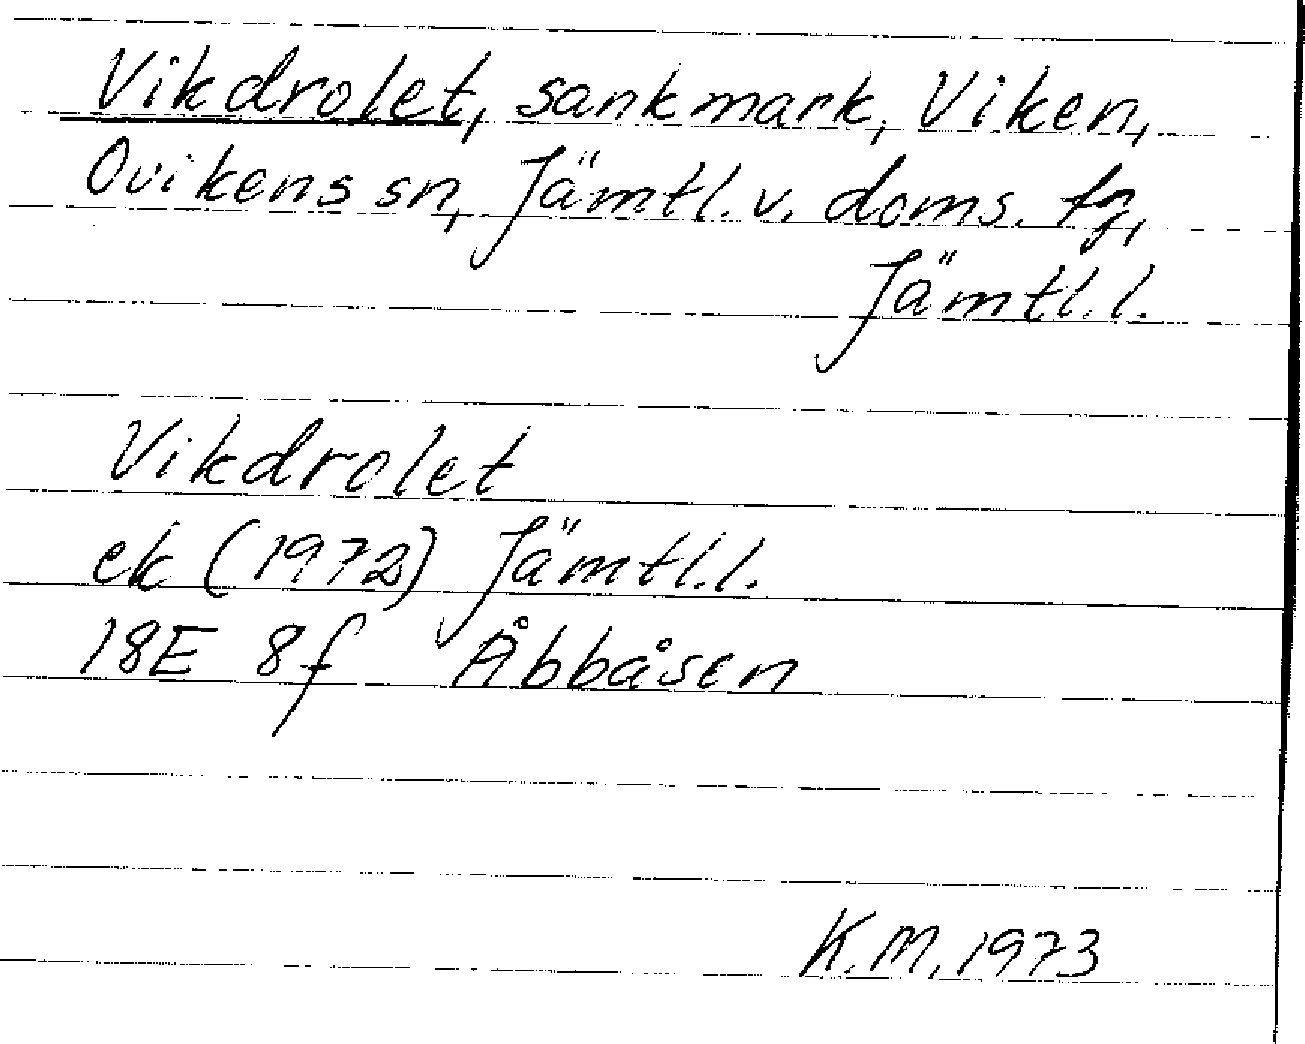 Vikdrolet, sankmark, Viken,
Ovikens sn, Jämtl. v. doms. tg,
Jämtl. l.
Vikdrolet
ek (1972) Jämtl. l.
18E 8f Åbbåsen
K.M. 1973